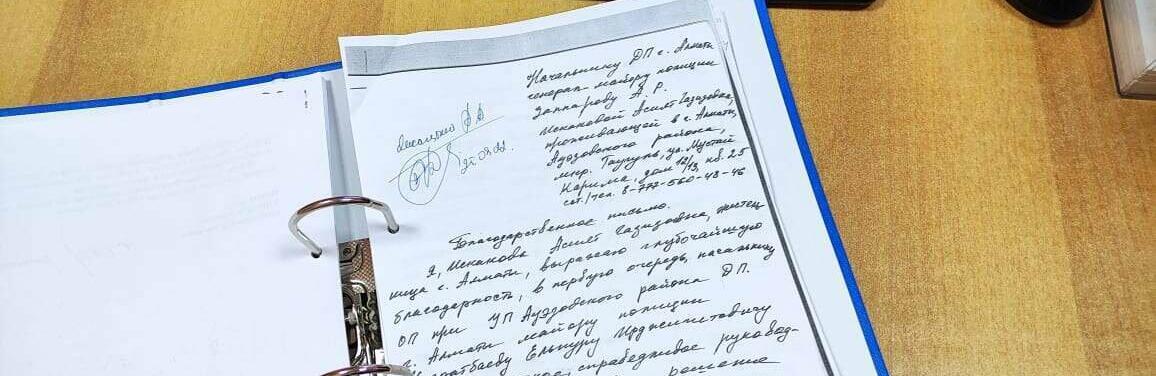 Начальнику ДП г. Алматы
генерал-майору полиции
Заппарову А. Р.
Искаковой Асият Газизовна,
проживающей в г. Алматы,
Ауэзовского района,
мкр. Таугуль, ул. Мустай
Карима, дом 12/13, кв. 25
сот./тел. 8-777-560-48-46
Благодарственное письмо.
Я, Искакова Асият Газизовна, житель
ница г. Алматы, выражаю глубочайшую
благодарность, в первую очередь, начальнику
ОП при УП Ауэзовского района ДП.
г. Алматы майору полиции
Ельнуру
справедливое руковод-
решение